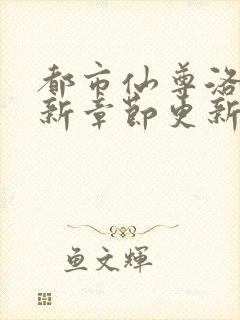 都市仙尊洛
新章节更新
鱼文辉